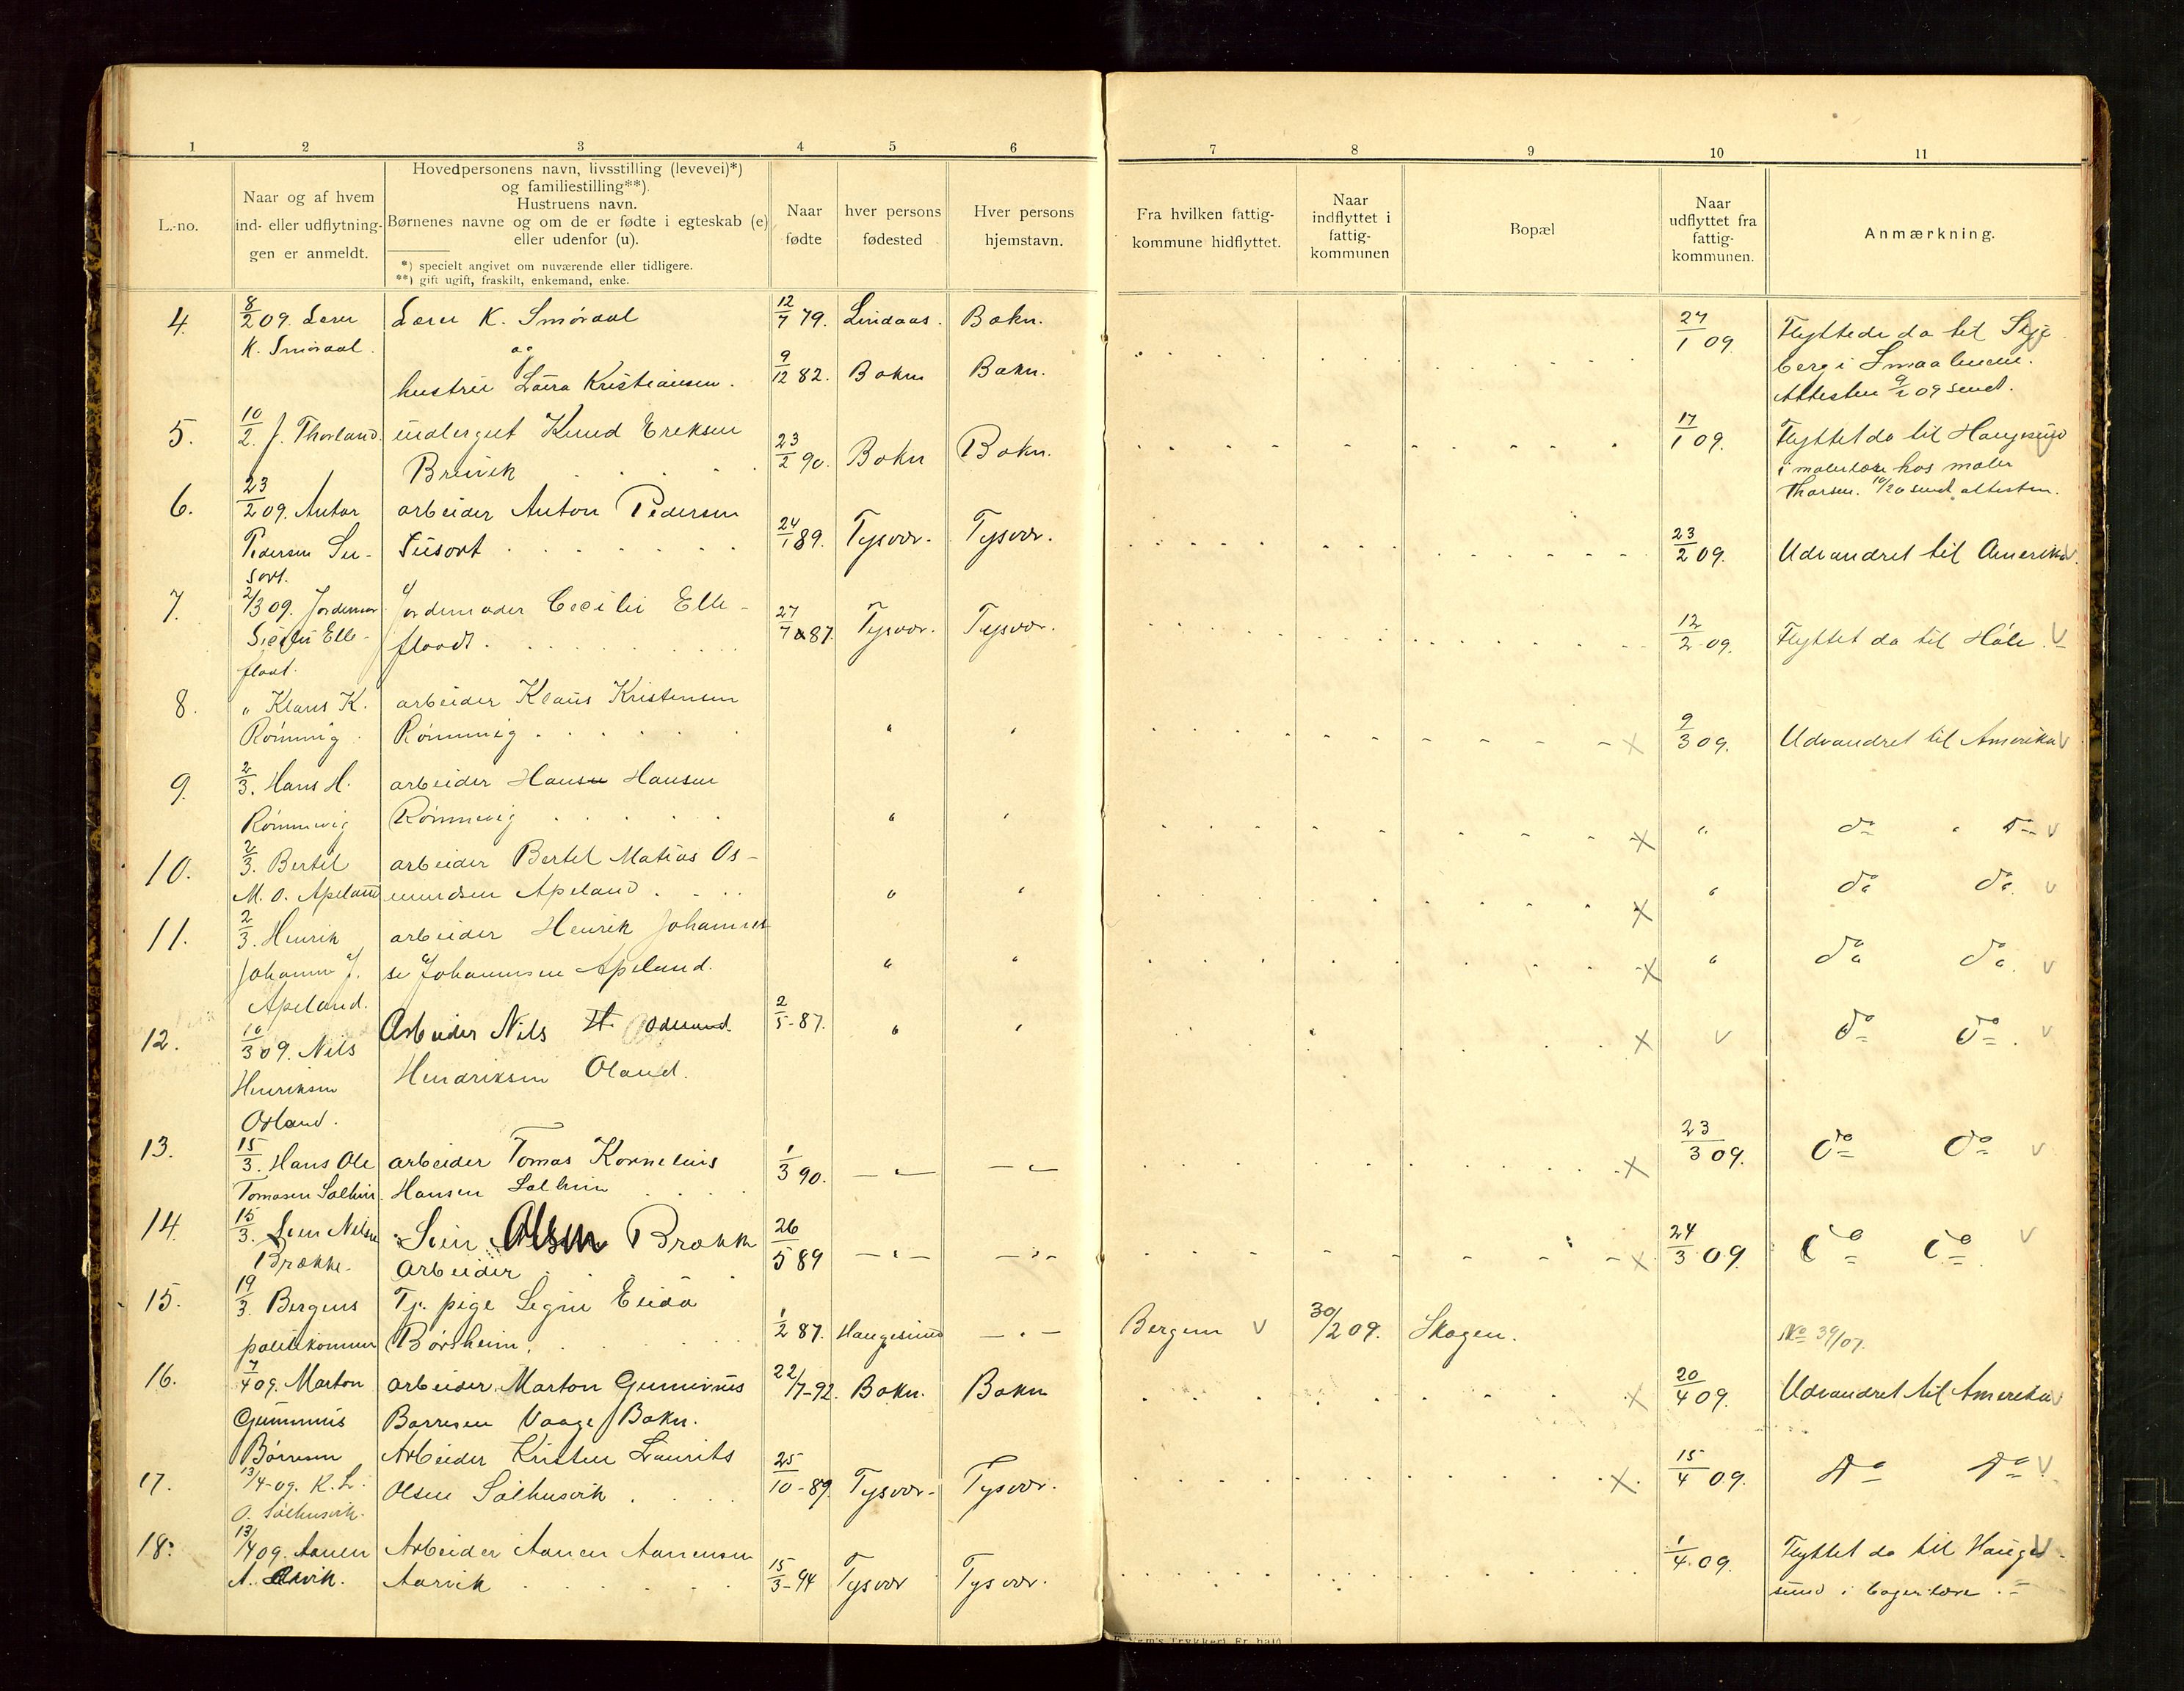 1 2 3 4 5 6 7 8 9 10 11
L.-no.
Naar og af hvem
ind- eller udflytnin-
gen er anmeldt.
Hovedpersonens navn, livsstilling (levevei)*)
og familiestilling**).
Hustruens navn.
Børnenes navne og om de er fødte i egteskab (e)
eller udenfor (u).
*) specielt angivet om nuværende eller tidligere.
**) gift ugift, fraskilt, enkemand, enke.
Naar
fødte
hver persons
fødested
Hver persons
hjemstavn.
Fra hvilken fattig-
kommune hidflyttet.
Naar
indflyttet i
fattig-
kommunen
Bopæl
Naar
udflyttet fra
fattig-
kommunen.
Anmærkning.
4. 8/2 09. Lærer Lærer K. Smørdal 12/7 79. Lindaas. Bokn. 27/1 09. Flyttede da til Skje
K. Smørdal. og
hustru Laura Kristiansen. 9/12 82. Bokn Bokn. berg i Smaalenene.
Attesten 9/2 09 sendt.
5. 10/2. J. Thorland. malergut Knud Ereksen 23/2 90. Bokn Bokn. 17/1 09. Flyttet da til Haugesund
Brevik i malerlære hos maler
Thorsen. 10/2 a sendt attesten.
6. 23/2 09. Anton arbeider Anton Pedersen 24/1 89. Tysvær. Tysvær. 23/2 09. Udvandret til Amerika
Pedersen Su- Susort
sort.
7. 2/3 09. Jordemor Jordemoder Cecilie Elle- 27/7 87. Tysvær. Tysvær. 12/2 09. Flyttet da til Høle.
Sicilie Elle- flaadt.
flaat.
8. " Klaus K. arbeider Klaus Kristensen
Rømmig Rømmvig " " 9/3 09. Udvandret til Amerika
9. 2/3. Hans H. arbeider Hansen Hansen
Rømmevig Rømmevig " " " do " do
10. 2/3. Bertel arbeider Bertel Matias Os-
M. O. Apeland mundsen Apeland. " " " do do
11. 2/3. Henrik arbeider Henrik Johannes
Johannes J. se Johannesen Apeland. " " " do do
Apeland.
12. 10/3 09. Nils Arbeider Nils H. 2/5-87. " " do do
Henriksen Hendriksen Oland.
13. 15/3. Hans Ole arbeider Tomas Kornelius 1/3 90. — " — — " — 23/3 09. do do
Tomasen Hansen
14. 15/3. Sven Nilsen Svein Olsen Brække 26/5 89 — " — — " — 24/3 09. do do
Brække. Arbeider
15. 19/3. Bergens Tj. pige
politikammer Børsheim. 1/2 87. Haugesund — " — Bergen 30/2 09. Skogen. No 39/07.
16. 7/4 09. Marton arbeider Marton Gunnerius 22/7-92. Bokn. Bokn 20/4 09. Udvandret til Amerika
Gunnerius Børresen Vaage Bokn.
Børresen Arbeider Kristen Laurits
17. 13/4-09. K. L. Olsen Salhusvik. 25/10-89. Tysvær. Tysvær. 15/4 09. do do
O. Salhusvik.
18. 13/4 09. Aanen Arbeider Aanen Aanensen 15/3-94 Tysvær Tysvær. 1/4 09. Flyttet da til Hauge-
A. Aarvik. sund i bagerlære.